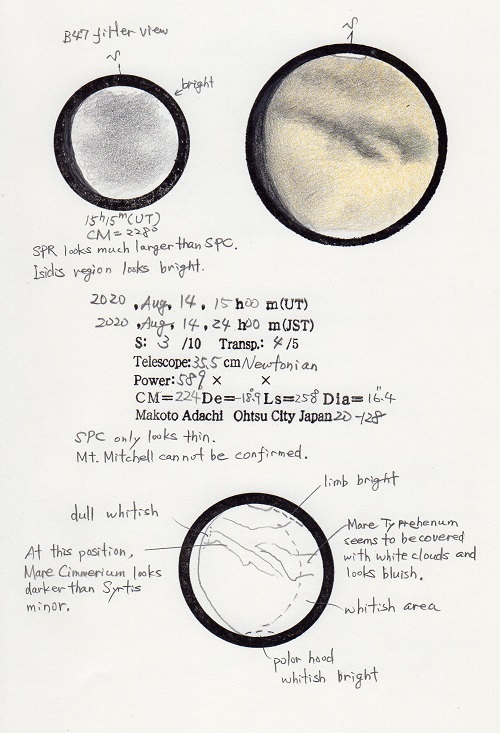 B47 filter view
S
bright
S
15h15m(UT)
CM=228°
SPR looks much larger than SPC.
Isidis region looks bright.
2020 , Aug, 14 , 15 h00 m(UT)
2020 , Aug, 14 , 24 h00 m(JST)
S: 3 /10 Transp.: 4/5
Telescope:35.5 cm Newtonian
Power:589 × ×
CM=224 De=-18°.9 Ls=258° Dia=16".4
Makoto Adachi Ohtsu City Japan 20-128
SPC only looks thin.
Mt. Mitchell cannot be confirmed.
limb bright
dull whitish
Mare Tyrrhenum
seems to be covered
with white clouds and
looks bluish.
At this position,
Mare Cimmerium looks
darker than Syrtis
minor.
whitish area
polor hood
whitish bright